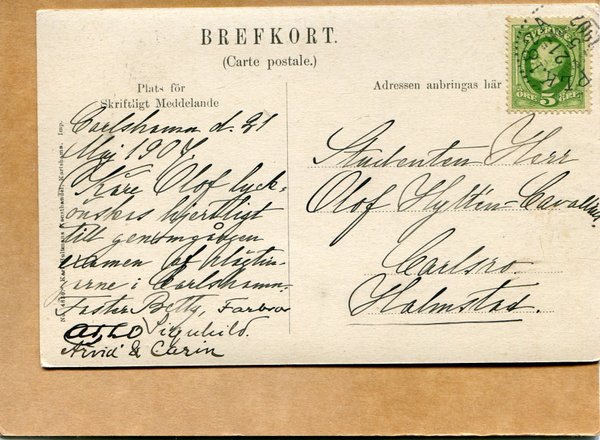 BREFKORT.
(Carte postale.)
Plats för
Skriftligt Meddelande
Adressen anbringas här
SVERIGE
5
Carlshamn d. 21
Maj 1907.
Käre Olof lyck-
önskas hjertligt
till genomgången
examen af släktin-
arne i Carlshamn.
Faster Betty, Farbror
Signhild.
Arvid & Carin
Studenten Herr
Olof Hyltén-Cavallius
Carlsro
Halmstad.